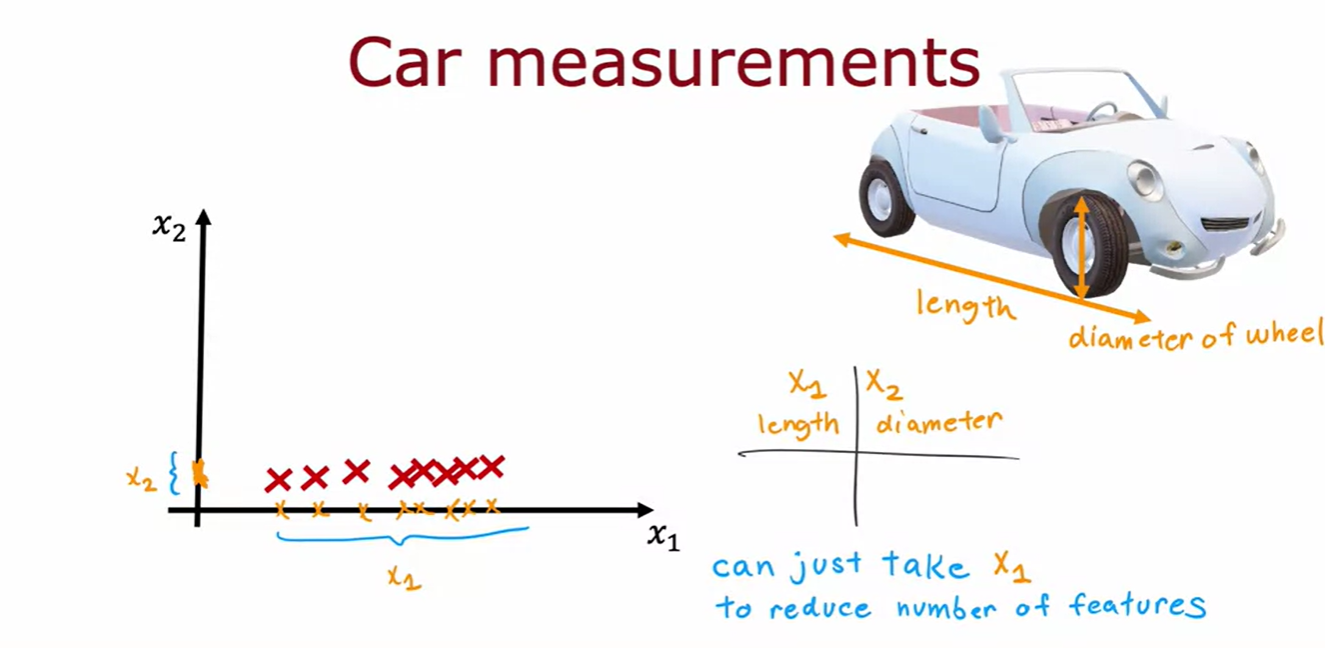 Car measurements
x₂
length
diameter of wheel
x₁ x₂
length diameter
x₂ {
x₁
x₁
can just take x₁
to reduce number of features